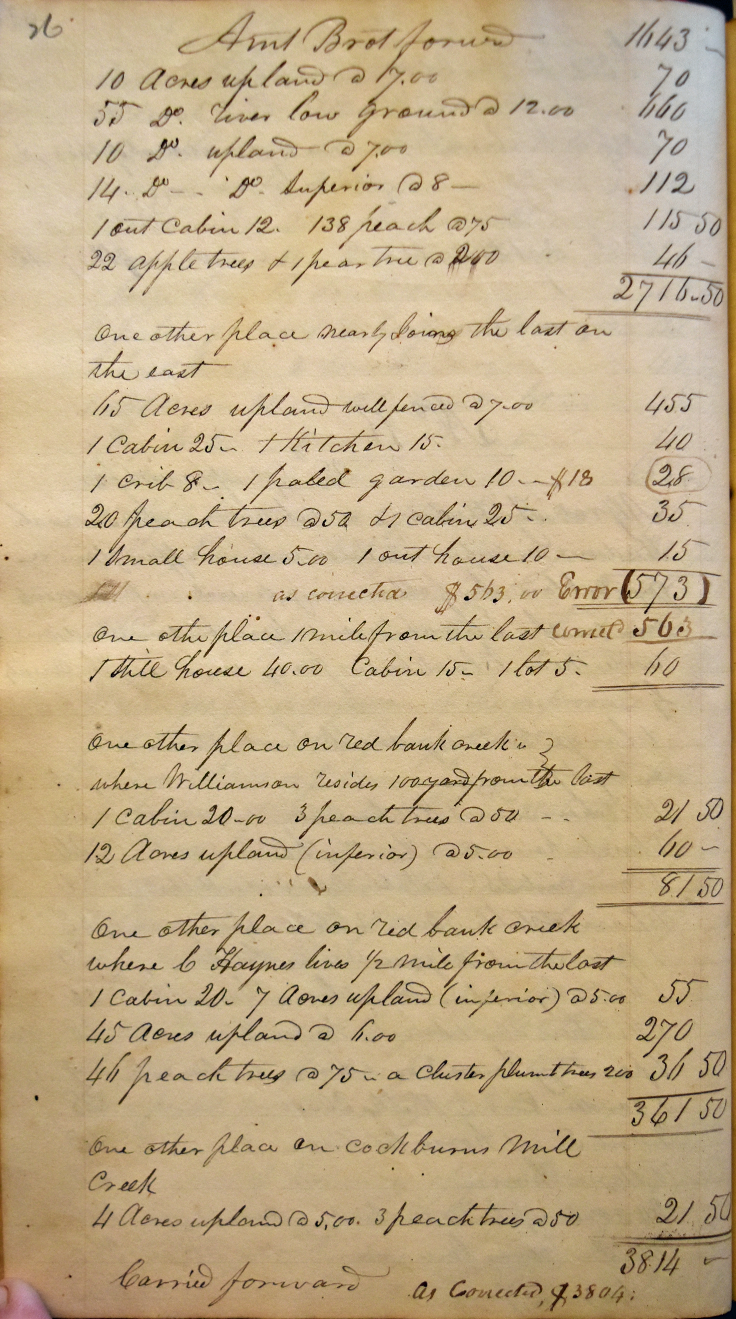 26
Amt Brot forward 1643 -
10 Acres upland @ 7.00 70
55 Do. river low ground @ 12.00 660
10 Do. upland @ 7.00 70
14. Do - Do. Superior @ 8 - 112
1 out Cabin 12. 138 peach @ 75 115 50
22 apple trees & 1 pear tree @ 200 46 -
2716.50
One other place nearly joining the last on
the east
65 Acres upland well fenced @ 7.00 455
1 Cabin 25 - 1 Kitchen 15. 40
1 crib 8 - 1 paled garden 10 - $18 28
20 peach trees @ 50 & 1 cabin 25 - 35
1 Small house 5.00 1 out house 10 - 15
as corrected $563.00 Error (573)
One othe place 1 mile from the last correct 563
1 Still house 40.00 Cabin 15 - 1 lot 5 - 60
One other place on red bank creek
where Williamson resides 100 yard from the last
1 Cabin 20.00 3 peach trees @ 50 - - 21 50
12 Acres upland (inferior) @ 5.00 60 -
81 50
One other place on red bank creek
where C Haynes lives 1/2 mile from the last
1 Cabin 20 - 7 Acres upland (inferior) @ 5.00 55
45 Acres upland @ 6.00 270
46 peach trees @ 75 - a cluster plumt trees 200 36 50
361 50
One other place on cockburns Mill
Creek
4 Acres upland @ 5.00. 3 peach trees @ 50 21 50
3814 -
Carried forward As Corrected, $3804: